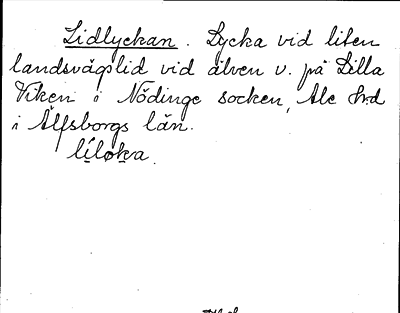 Lidlyckan. Lycka vid liten
landsvägslid vid älven v. på Lilla
Viken i Nödinge socken, Ale hrd
i Älfsborgs län.
líløka.